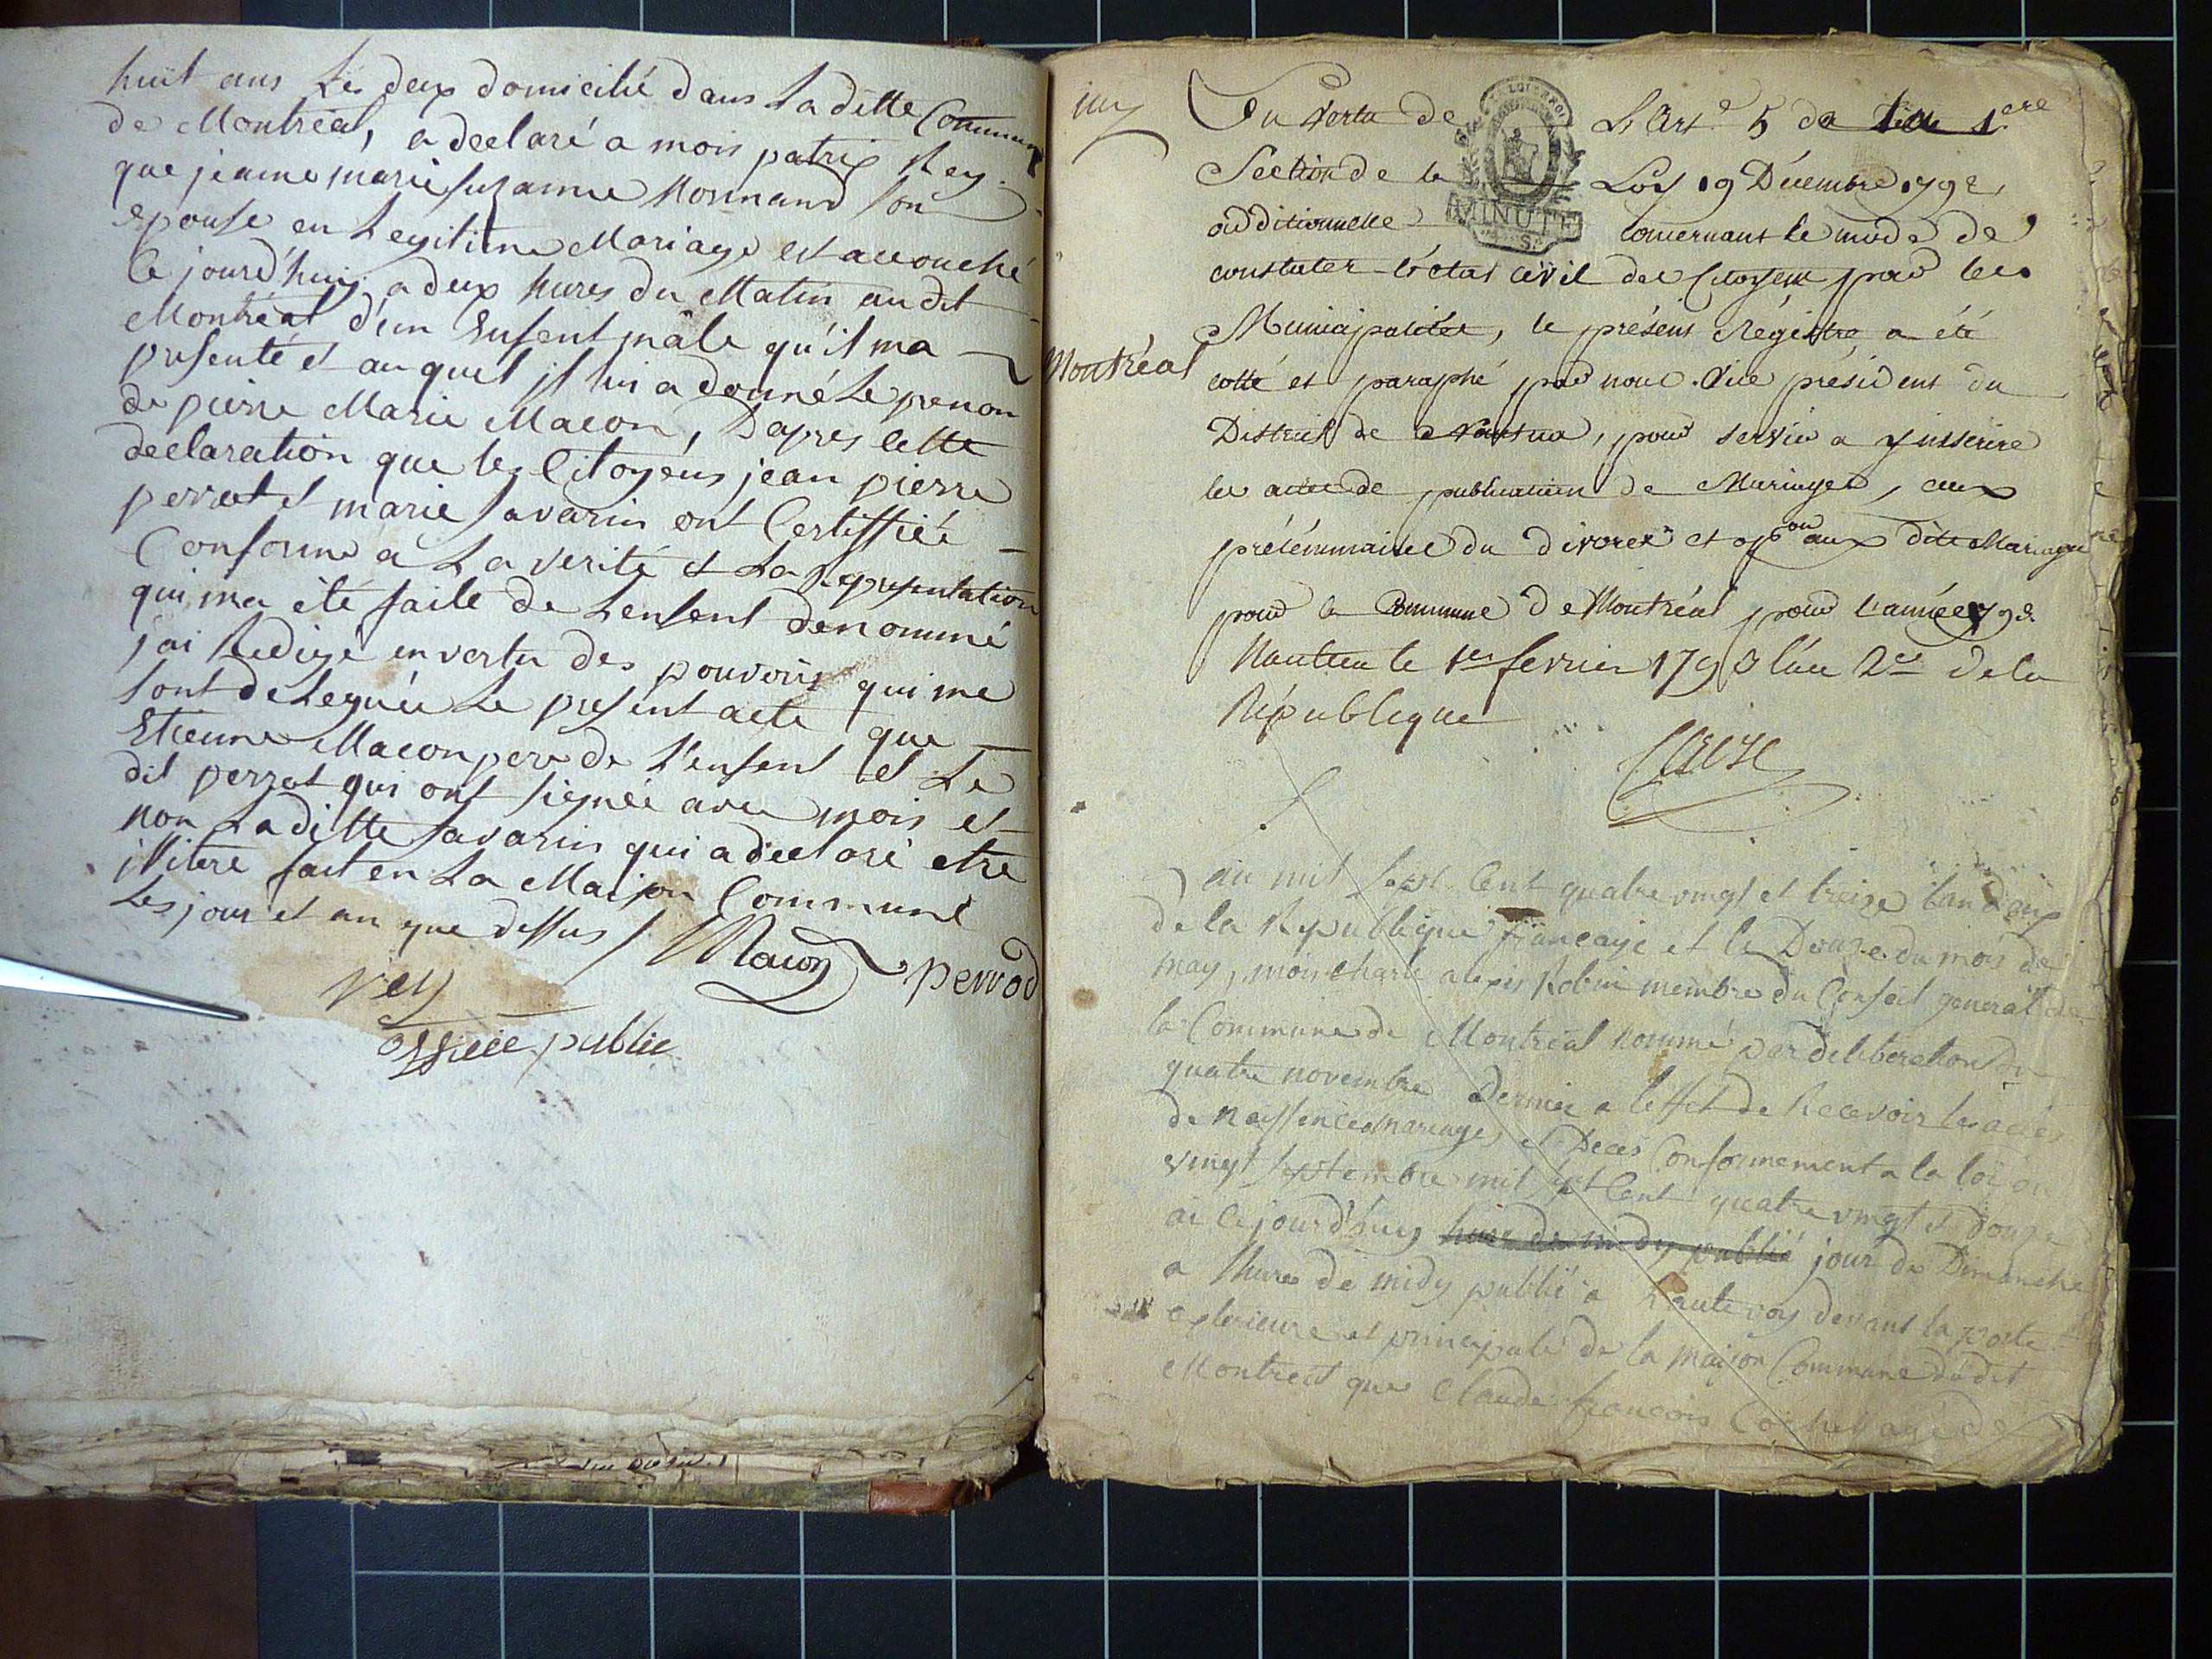 huit ans Les deux domicilié dans La ditte Commune
de Montréal, a declaré a mois patrix Rey
que jeanne marie suzanne Normand son
epouse en Legitime Mariage est accouché
Ce jourd'huy a deux hures du Matin au dit
Montréal d'un Enfent mâle qu'il ma
presenté et au quel jl lui a donné Le prenon
de pierre Marie Macon, Dapres cette
declaration que les Citoyens jean pierre
perrot et marie Savarin ont Certiffiée
Conforme a La verité et La representation
qui ma été faite de Lenfent denommé
j'ai Redigé en vertu des pouvoirs qui me
sont deleguée Le present acte que
Etienne Macon pere de l'enfent et Le
dit perrot qui ont signée avec mois et
non La ditte Savarin qui a declaré etre
jlitere fait en La Maison Commune
Les jour et an que dessus / Macon perrod
rey
officié public
En Vertu de L'Art.e 5 de la 1.ere
Section de la Loy 19 Décembre 1792,
additionnelle concernant le mode de
MINUTE
constater l'état civil des Citoyens par les
Municipalités, le présent Régistre a été
Montréal
cotté et paraphé par nous vice président du
District de Nantua, pour servir a y inscrire
les actes de publication de Mariages, ceux
prélémminaires du divorce et op.on aux dits Mariages
pour la Commune de Montréal pour l'année 1793
Nantua le 1er fevrier 1793 l'an 2e de la
République
au mil sept Cent quatre vingt et treize lan deux
de la Republique françaije et le Douze du mois de
may, mois charle alexis Robin membre du Conseil general de
la Commune de Montréal nommé par deliberation du
quatre novembre Dernier a leffet de Recevoir les actes
de Naissences mariages et Deces Conformement a la loi du
vingt septembre mil sept Cent quatre vingt et Douze
ai Ce jourd'huy hure de midy publié jour de Dimanche
a lhure de midy publié a haute voix devant la porte
exterieure et principale de la maison Commune du dit
Montréal que Claude françois